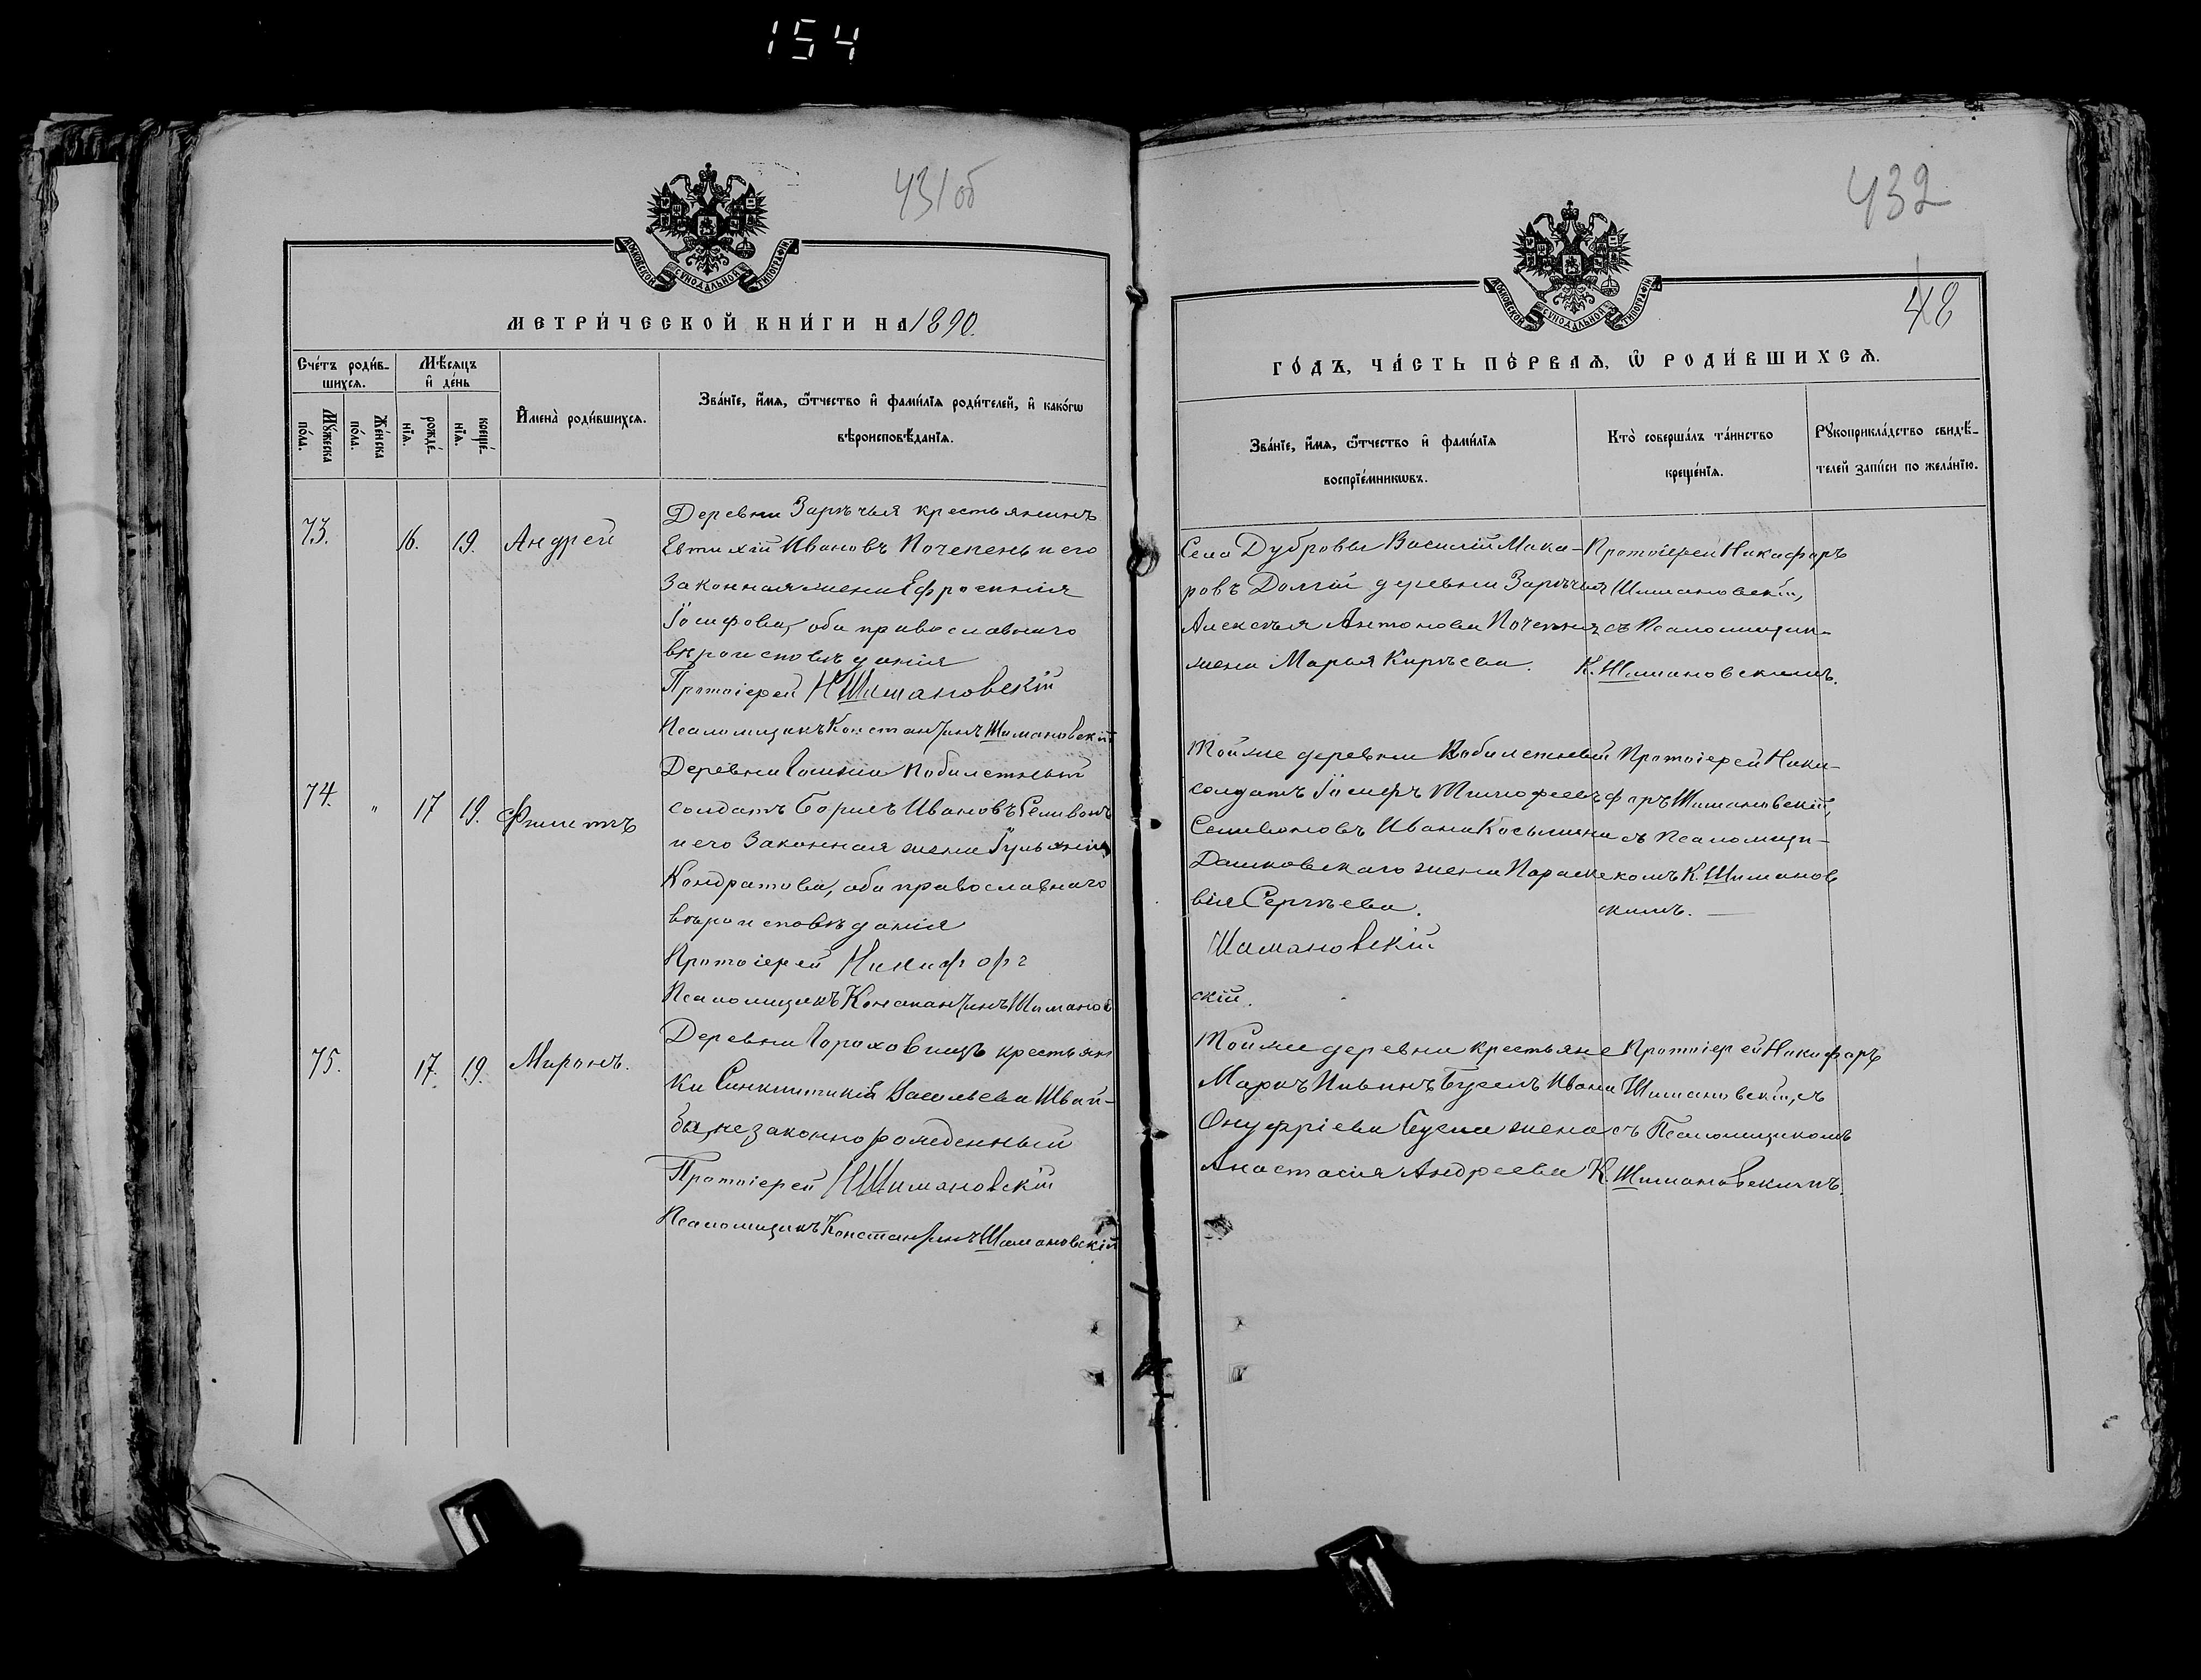 154
431об
МОСКОВСКОЙ СУНОДАЛЬНОЙ ТИПОГРАФІИ
МЕТРИ́ЧЕСКОЙ КНИ́ГИ НА 1890.
Сче́тъ роди́в-
шихся.
Мѣ́сяцъ
и҆ де́нь
Мꙋ́жеска
по́ла.
Же́нска
по́ла.
рожде́-
нїѧ.
креще́-
нїѧ.
И҆мена̀ роди́вшихсѧ.
Зва́нїе, и҆́мѧ, ѻ҆́тчество и҆ фами́лїѧ роди́телей, и҆ како́гѡ
вѣроисповѣ́данїѧ.
73.
16.
19.
Андрей
Деревни Зарѣчья крестьянинъ
Евтихій Ивановъ Почепень и его
Законная жена Ефросинія
Іосифова, оба православнаго
вѣроисповѣданія
Протоіерей Н Шимановскій
Псаломщикъ Константинъ Шимановскій
74.
"
17
19.
Филиппъ
Деревни побилетный
солдатъ Борисъ Ивановъ
и его Законная жена Іуліанія
Кондратова, оба православнаго
вѣроисповѣданія
Протоіерей Никифоръ
Псаломщикъ Константинъ Шиманов
75.
17.
19.
Миронъ.
Деревни Гороховищъ крестьян
ки Синклитикія Васильева Швай-
ба, незаконнорожденный
Протоіерей Н Шимановскій
Псаломщикъ Константинъ Шимановскій
432
МОСКОВСКОЙ СУНОДАЛЬНОЙ ТИПОГРАФІИ
48
ГО́ДЪ, ЧА́СТЬ ПЕ́РВАѦ, Ѡ҆ РОДИ́ВШИХСѦ.
Зва́нїе, и҆́мѧ, ѻ҆́тчество и҆ фами́лїѧ
воспрїе́мникѡвъ.
Кто̀ соверша́лъ та́инство
креще́нїѧ.
Рꙋкоприкла́дство свидѣ́-
телей за́писи по жела́нїю.
Села Дубровы Василій Мака-
ровъ Долгій деревни Зарѣчья
Алексѣя Антонова Почепня
жена Марья Кирѣева.
Протоіерей Никифоръ
Шимановскій,
съ Псаломщик.
К. Шимановскимъ.
Той же деревни побилетный
солдатъ Іосифъ Тимофеевъ
Селивоновъ Ивана Косьмина
Дашковскаго жена Параске
вія Сергѣева.
Протоіерей Ники-
форъ Шимановскій,
съ Псаломщи-
комъ К. Шиманов
скимъ.
Шимановскій
скій.
Той же деревни крестьяне
Маркъ Бусель Ивана
Онуфріева Буселя жена
Анастасія Андреева
Протоіерей Никифоръ
Шимановскій, съ
съ Псаломщикомъ
К. Шимановскимъ.